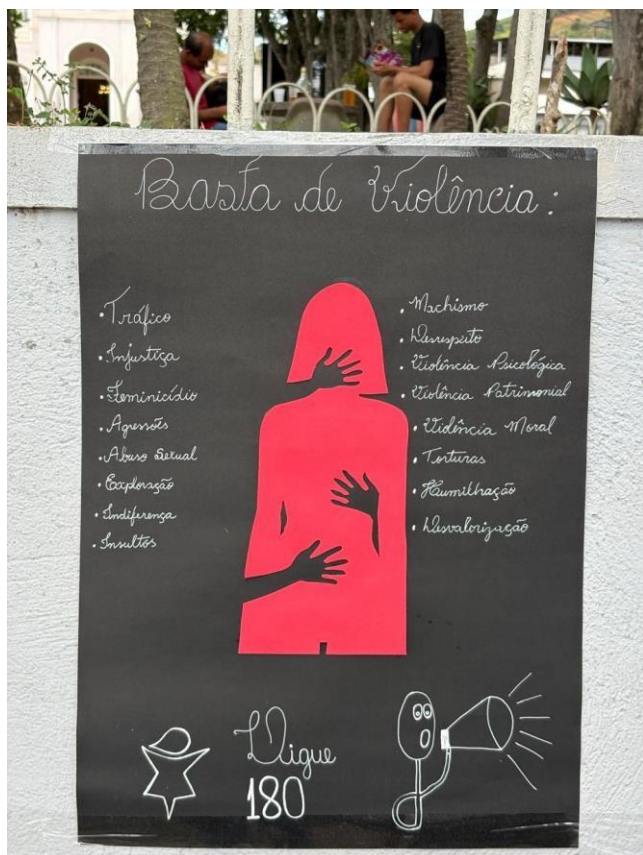 Basta de Violência:
• Tráfico
• Injustiça
• Feminicídio
• Agressões
• Abuso Sexual
• Exploração
• Indiferença
• Insultos
• Machismo
• Desrespeito
• Violência Psicológica
• Violência Patrimonial
• Violência Moral
• Torturas
• Humilhação
• Desvalorização
Digue
180